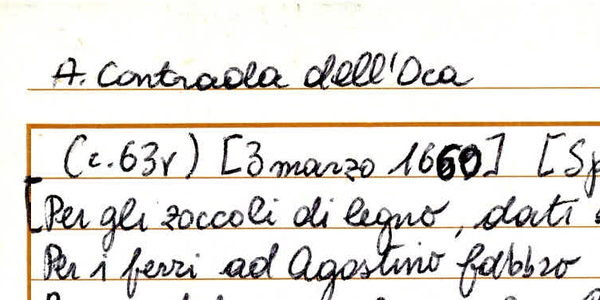 A. Contrada dell'Oca
(c. 63r) [3 marzo 1660] [Sp
[Per gli zoccoli di legno, dati
Per i ferri ad Agostino fabbro